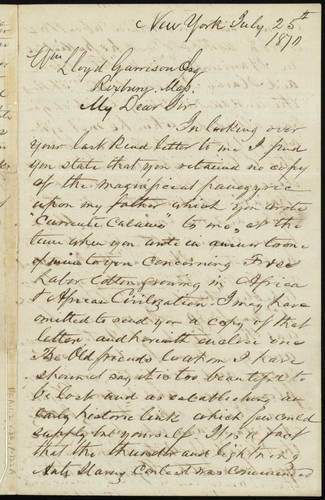 New York July 25th
1870
Wm Lloyd Garrison Esq
Roxbury Mass.
My Dear Sir
In looking over
your last kind letter to me I find
you state that you retained no copy
of the magnificent panegyric
upon my father which you wrote
"Currente Calamo" to me, at the
time when you wrote in answer to one
of mine to you concerning Free
Labor Cotton growing in Africa
& African Civilization I may have
omitted to send you a copy of that
letter and herewith enclose one
The Old friends to whom I have
shown it say it is too beautiful to
be lost and as establishing an
early historic link which few could
supply but yourself It is a fact
that the thunder and lightning
Anti Slavery Contest was commenced